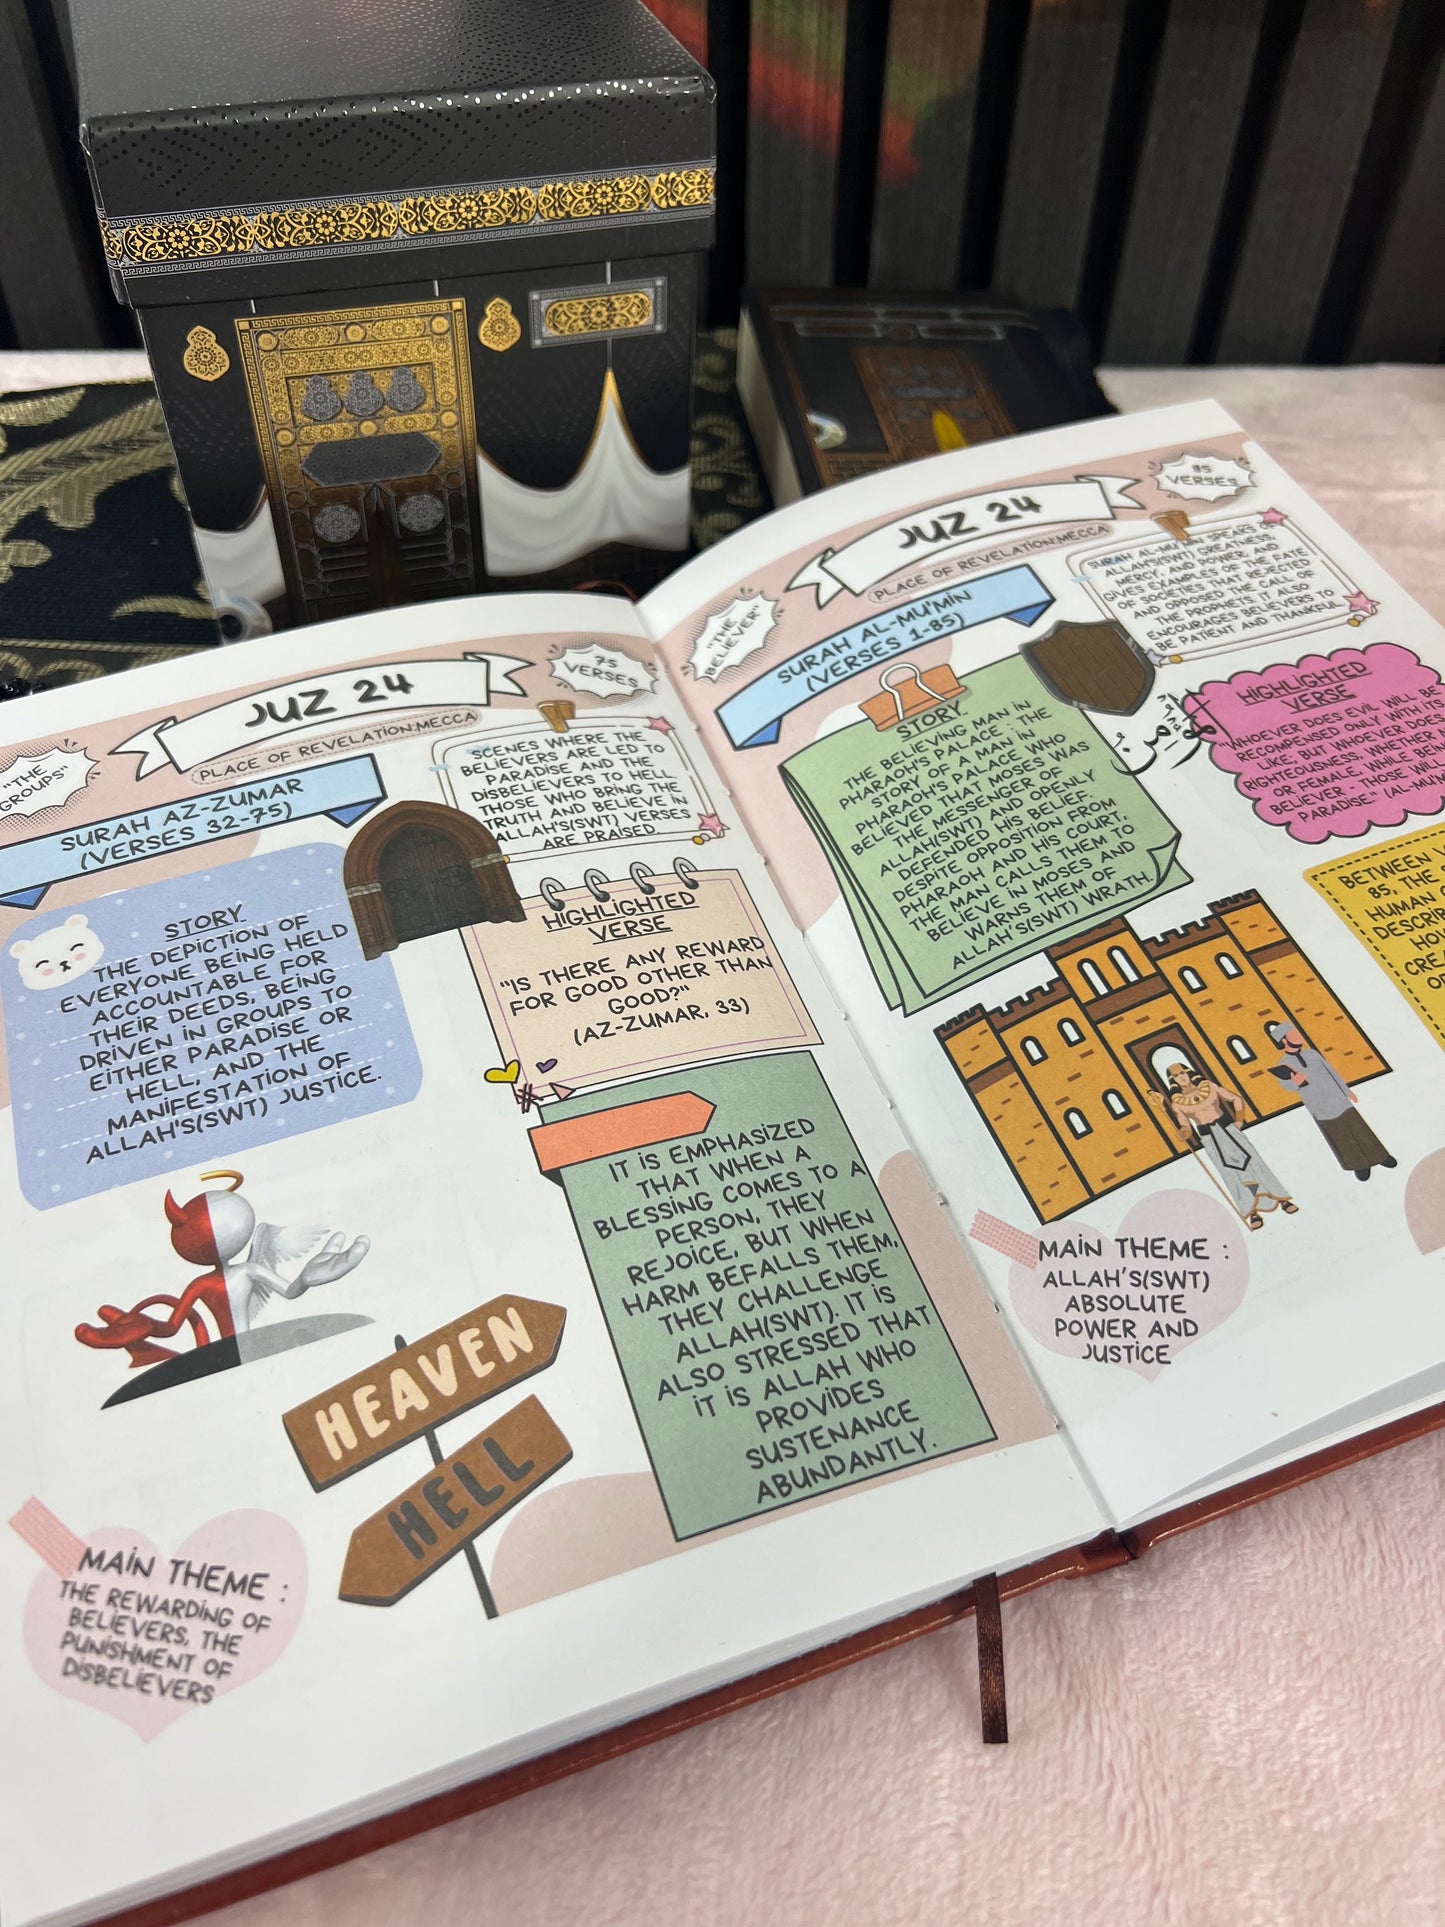 JUZ 24
PLACE OF REVELATION:MECCA
75
VERSES
"THE
GROUPS"
SURAH AZ-ZUMAR
(VERSES 32-75)
SCENES WHERE THE
BELIEVERS ARE LED TO
PARADISE AND THE
DISBELIEVERS TO HELL.
THOSE WHO BRING THE
TRUTH AND BELIEVE IN
ALLAH'S(SWT) VERSES
ARE PRAISED.
STORY
THE DEPICTION OF
EVERYONE BEING HELD
ACCOUNTABLE FOR
THEIR DEEDS, BEING
DRIVEN IN GROUPS TO
EITHER PARADISE OR
HELL, AND THE
MANIFESTATION OF
ALLAH'S(SWT) JUSTICE.
HIGHLIGHTED
VERSE
"IS THERE ANY REWARD
FOR GOOD OTHER THAN
GOOD?"
(AZ-ZUMAR, 33)
IT IS EMPHASIZED
THAT WHEN A
BLESSING COMES TO A
PERSON, THEY
REJOICE, BUT WHEN
HARM BEFALLS THEM,
THEY CHALLENGE
ALLAH(SWT). IT IS
ALSO STRESSED THAT
IT IS ALLAH WHO
PROVIDES
SUSTENANCE
ABUNDANTLY.
HEAVEN
HELL
MAIN THEME :
THE REWARDING OF
BELIEVERS, THE
PUNISHMENT OF
DISBELIEVERS
JUZ 24
PLACE OF REVELATION:MECCA
85
VERSES
"THE
BELIEVER"
SURAH AL-MU'MIN
(VERSES 1-85)
SURAH AL-MU'MIN SPEAKS OF
ALLAH'S(SWT) GREATNESS,
MERCY, AND POWER, AND
GIVES EXAMPLES OF THE FATE
OF SOCIETIES THAT REJECTED
AND OPPOSED THE CALL OF
THE PROPHETS. IT ALSO
ENCOURAGES BELIEVERS TO
BE PATIENT AND THANKFUL.
STORY
THE BELIEVING MAN IN
PHARAOH'S PALACE: THE
STORY OF A MAN IN
PHARAOH'S PALACE WHO
BELIEVED THAT MOSES WAS
THE MESSENGER OF
ALLAH(SWT) AND OPENLY
DEFENDED HIS BELIEF.
DESPITE OPPOSITION FROM
PHARAOH AND HIS COURT,
THE MAN CALLS THEM TO
BELIEVE IN MOSES AND
WARNS THEM OF
ALLAH'S(SWT) WRATH.
HIGHLIGHTED
VERSE
"WHOEVER DOES EVIL WILL BE
RECOMPENSED ONLY WITH ITS
LIKE; BUT WHOEVER DOES
RIGHTEOUSNESS, WHETHER
OR FEMALE, WHILE BEING
BELIEVER - THOSE WILL
PARADISE." (AL-MU
BETWEEN
85, THE
HUMAN
DESCRIB
MAIN THEME :
ALLAH'S(SWT)
ABSOLUTE
POWER AND
JUSTICE